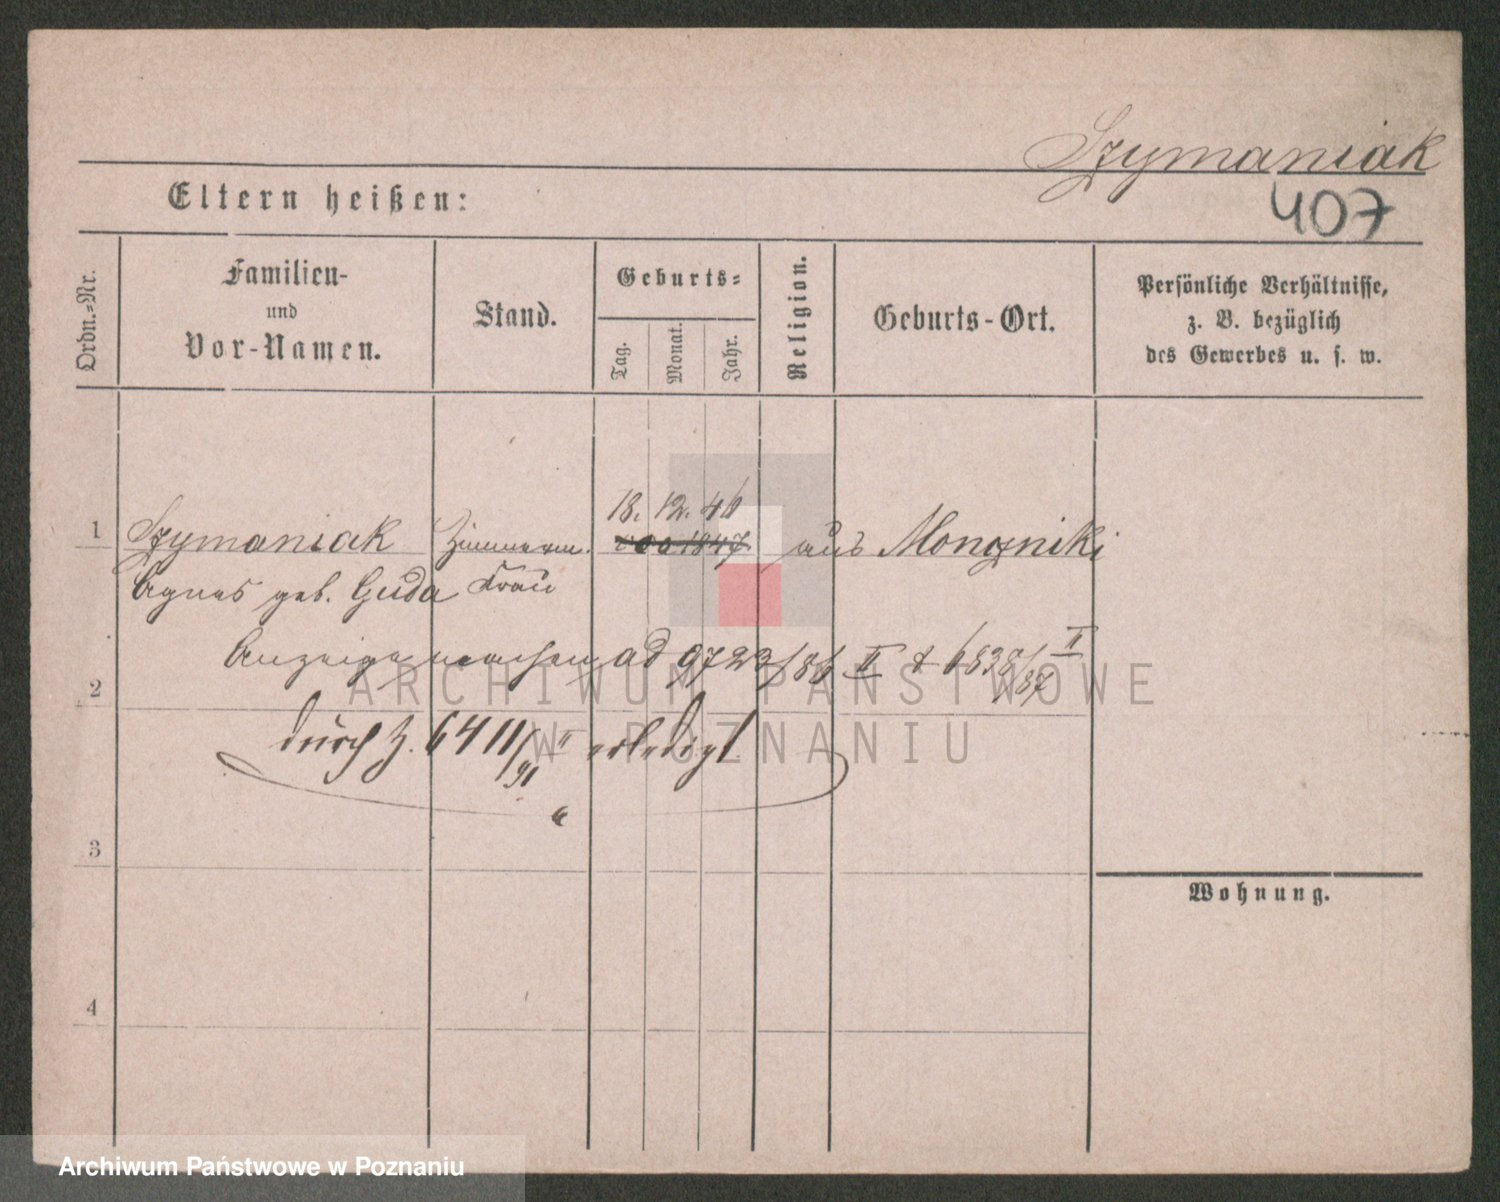 Szymaniak
407
Eltern heißen:
Ordn.-Nr.
Familien-
und
Vor-Namen.
Stand.
Geburts-
Tag.
Monat.
Jahr.
Religion.
Geburts-Ort.
Persönliche Verhältnisse,
z. B. bezüglich
des Gewerbes u. s. w.
18. 12. 46
1 Szymaniak Zimmerm. 1847 aus
Agnes geb. Guda Frau
Anzeige machen ad 9723/86 II & 6838/87 II
2
durch Z. 6411/91 II erledigt
3
Wohnung.
4
ARCHIWUM PAŃSTWOWE
W POZNANIU
Archiwum Państwowe w Poznaniu